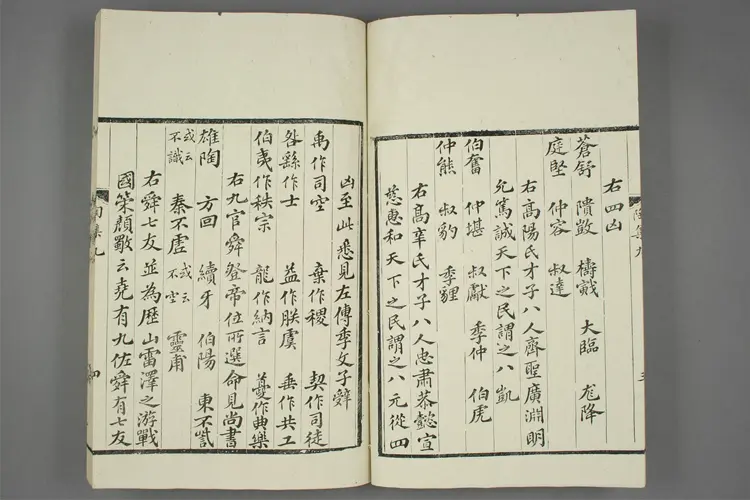 右四凶
蒼舒 隤敳 檮戭 大臨 尨降
庭堅 仲容 叔達
右高陽氏才子八人齊聖廣淵明
允篤誠天下之民謂之八凱
伯奮 仲堪 叔獻 季仲 伯虎
仲熊 叔豹 季貍
右高辛氏才子八人忠肅恭懿宣
慈惠和天下之民謂之八元從四
凶至此悉見左傳季文子辭
禹作司空 棄作稷 契作司徒
咎繇作士 益作朕虞 垂作共工
伯夷作秩宗 龍作納言 夔作典樂
右九官舜登帝位所選命見尚書
雄陶 方回 續牙 伯陽 東不訾
或云不識 秦不虛 或云不空 靈甫
右舜七友並為歷山雷澤之游戰
國策顏歜云堯有九佐舜有七友